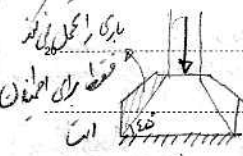 باری را تحمل نمی کند
فقط برای اطمینان
است
45°